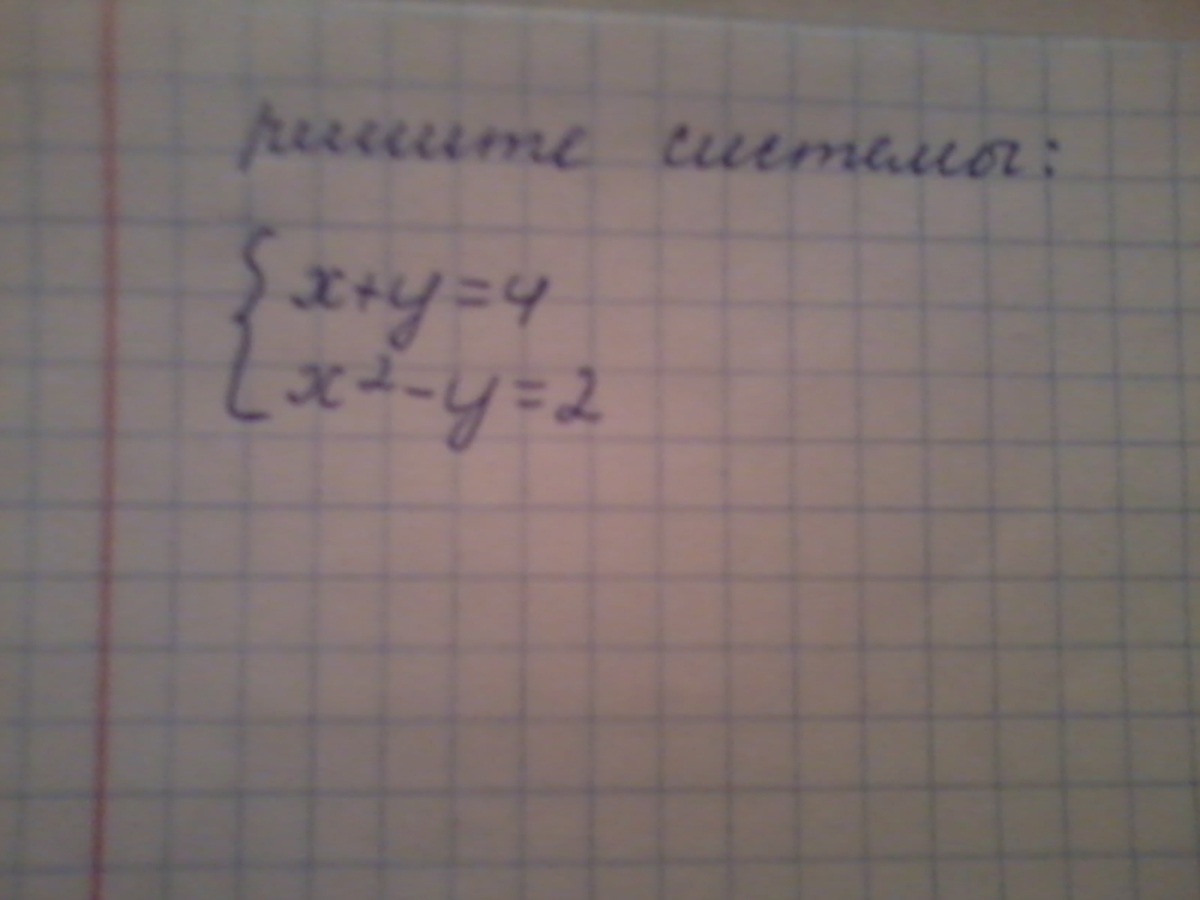 решите системы:
x+y=4
x²-y=2